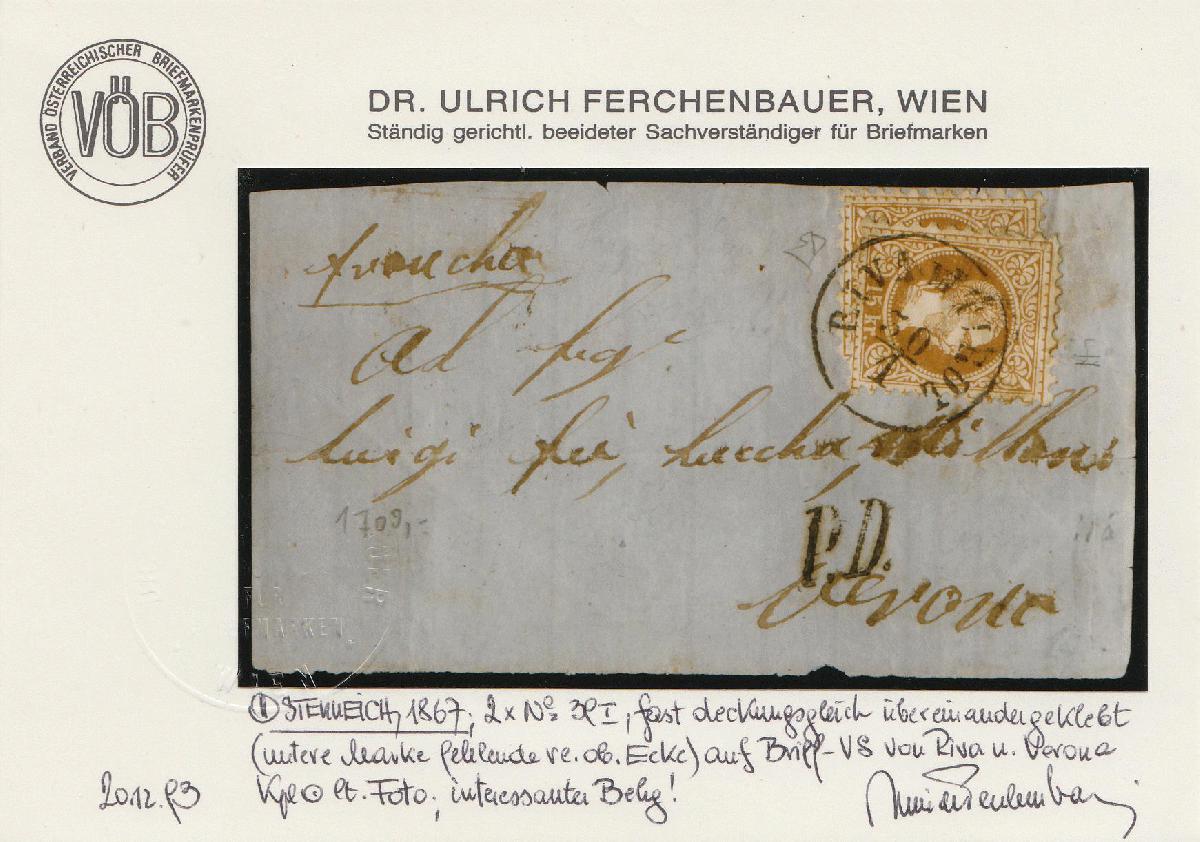 VERBAND ÖSTERREICHISCHER BRIEFMARKENPRÜFER
VÖB
DR. ULRICH FERCHENBAUER, WIEN
Ständig gerichtl. beeideter Sachverständiger für Briefmarken
franca
RIVA
15 kr
Al Sigr
Luigi
1709,-
P.D.
Verona
MARKEN
WIEN
ÖSTERREICH, 1867, 2x No 39 I, fast deckungsgleich übereinandergeklebt
(untere Marke fehlende re. ob. Ecke) auf Brief-VS von Riva n. Verona
20.12.93 Kpl ⊙ lt. Foto, interessanter Beleg!